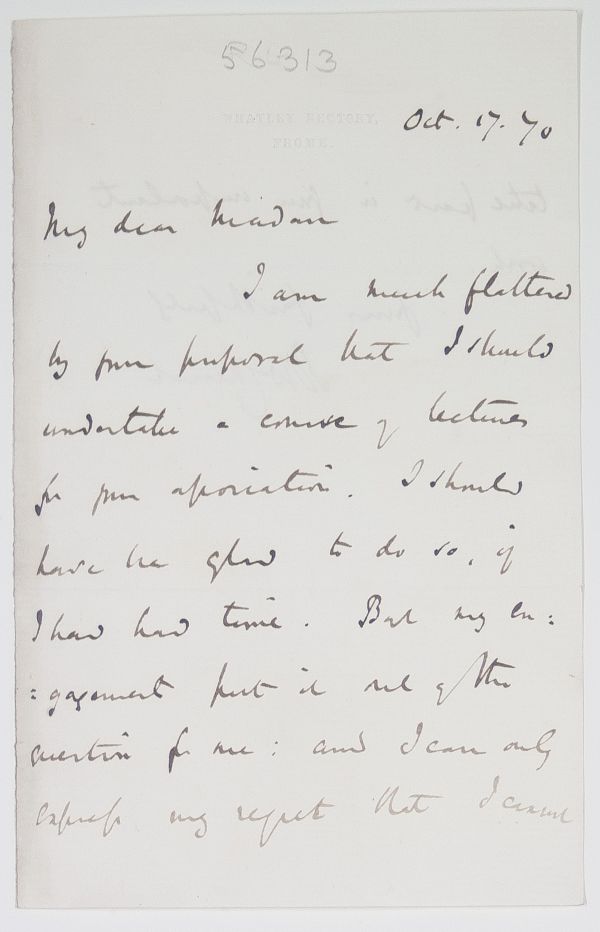 56313
WHATLEY RECTORY,
FROME.
Oct. 17. 70
My dear Madam
I am much flattered
by your proposal that I should
undertake a course of lectures
for your association. I should
have been glad to do so, if
I had had time. But my en:
:gagements put it out of the
question for me: and I can only
express my regret that I cannot